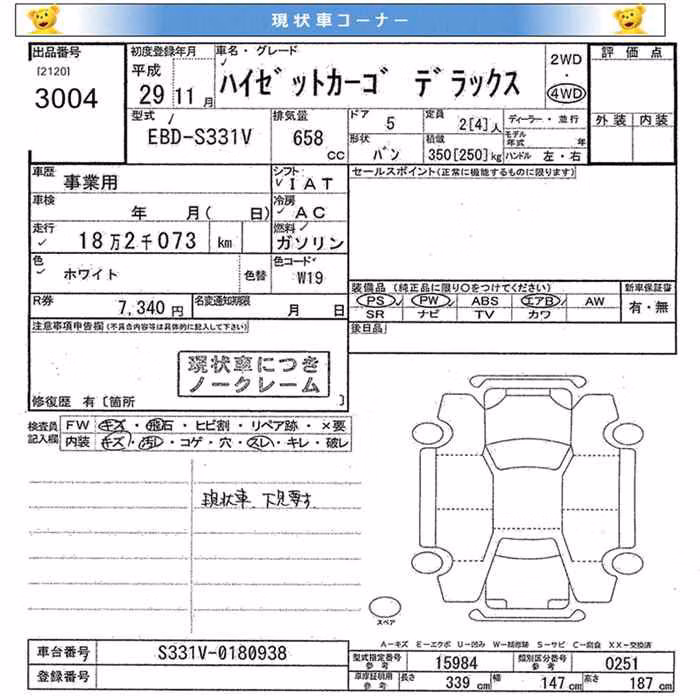 現状車コーナー
出品番号 [2120] 3004
初度登録年月 平成 29 11月
車名・グレード ハイゼットカーゴ デラックス
2WD・4WD
評価点
外装 内装
型式 EBD-S331V
排気量 658 CC
ドア 5
定員 2[4]人
ディーラー・並行
形状 バン
積載 350[250]kg
モデル年式 年
ハンドル 左・右
車歴 事業用
シフト IAT
セールスポイント(正常に機能するものに限ります)
車検 年 月( 日)
冷房 AC
走行 18万2千073 km
燃料 ガソリン
色 ホワイト 色替
色コード W19
装備品 (純正品に限り○をつけてください)
新車保証書 有・無
PS PW ABS エアB AW
SR ナビ TV カワ
R券 7,340円
名変通知期限 月 日
後日品
注意事項申告欄(不具合内容等は具体的に記入して下さい)
現状車につき
ノークレーム
修復歴 有〔箇所 〕
検査員記入欄
FW キズ・飛石・ヒビ割・リペア跡・×要
内装 キズ・汚レ・コゲ・穴・スレ・キレ・破レ
現状車 下見要す
スペア
A-キズ E-エクボ U-凹み W-補修跡 S-サビ C-腐食 XX-交換済
車台番号 S331V-0180938
登録番号
型式指定番号 参考 15984
類別区分番号 参考 0251
車庫証明用 参考 長さ 339cm 幅 147cm 高さ 187cm